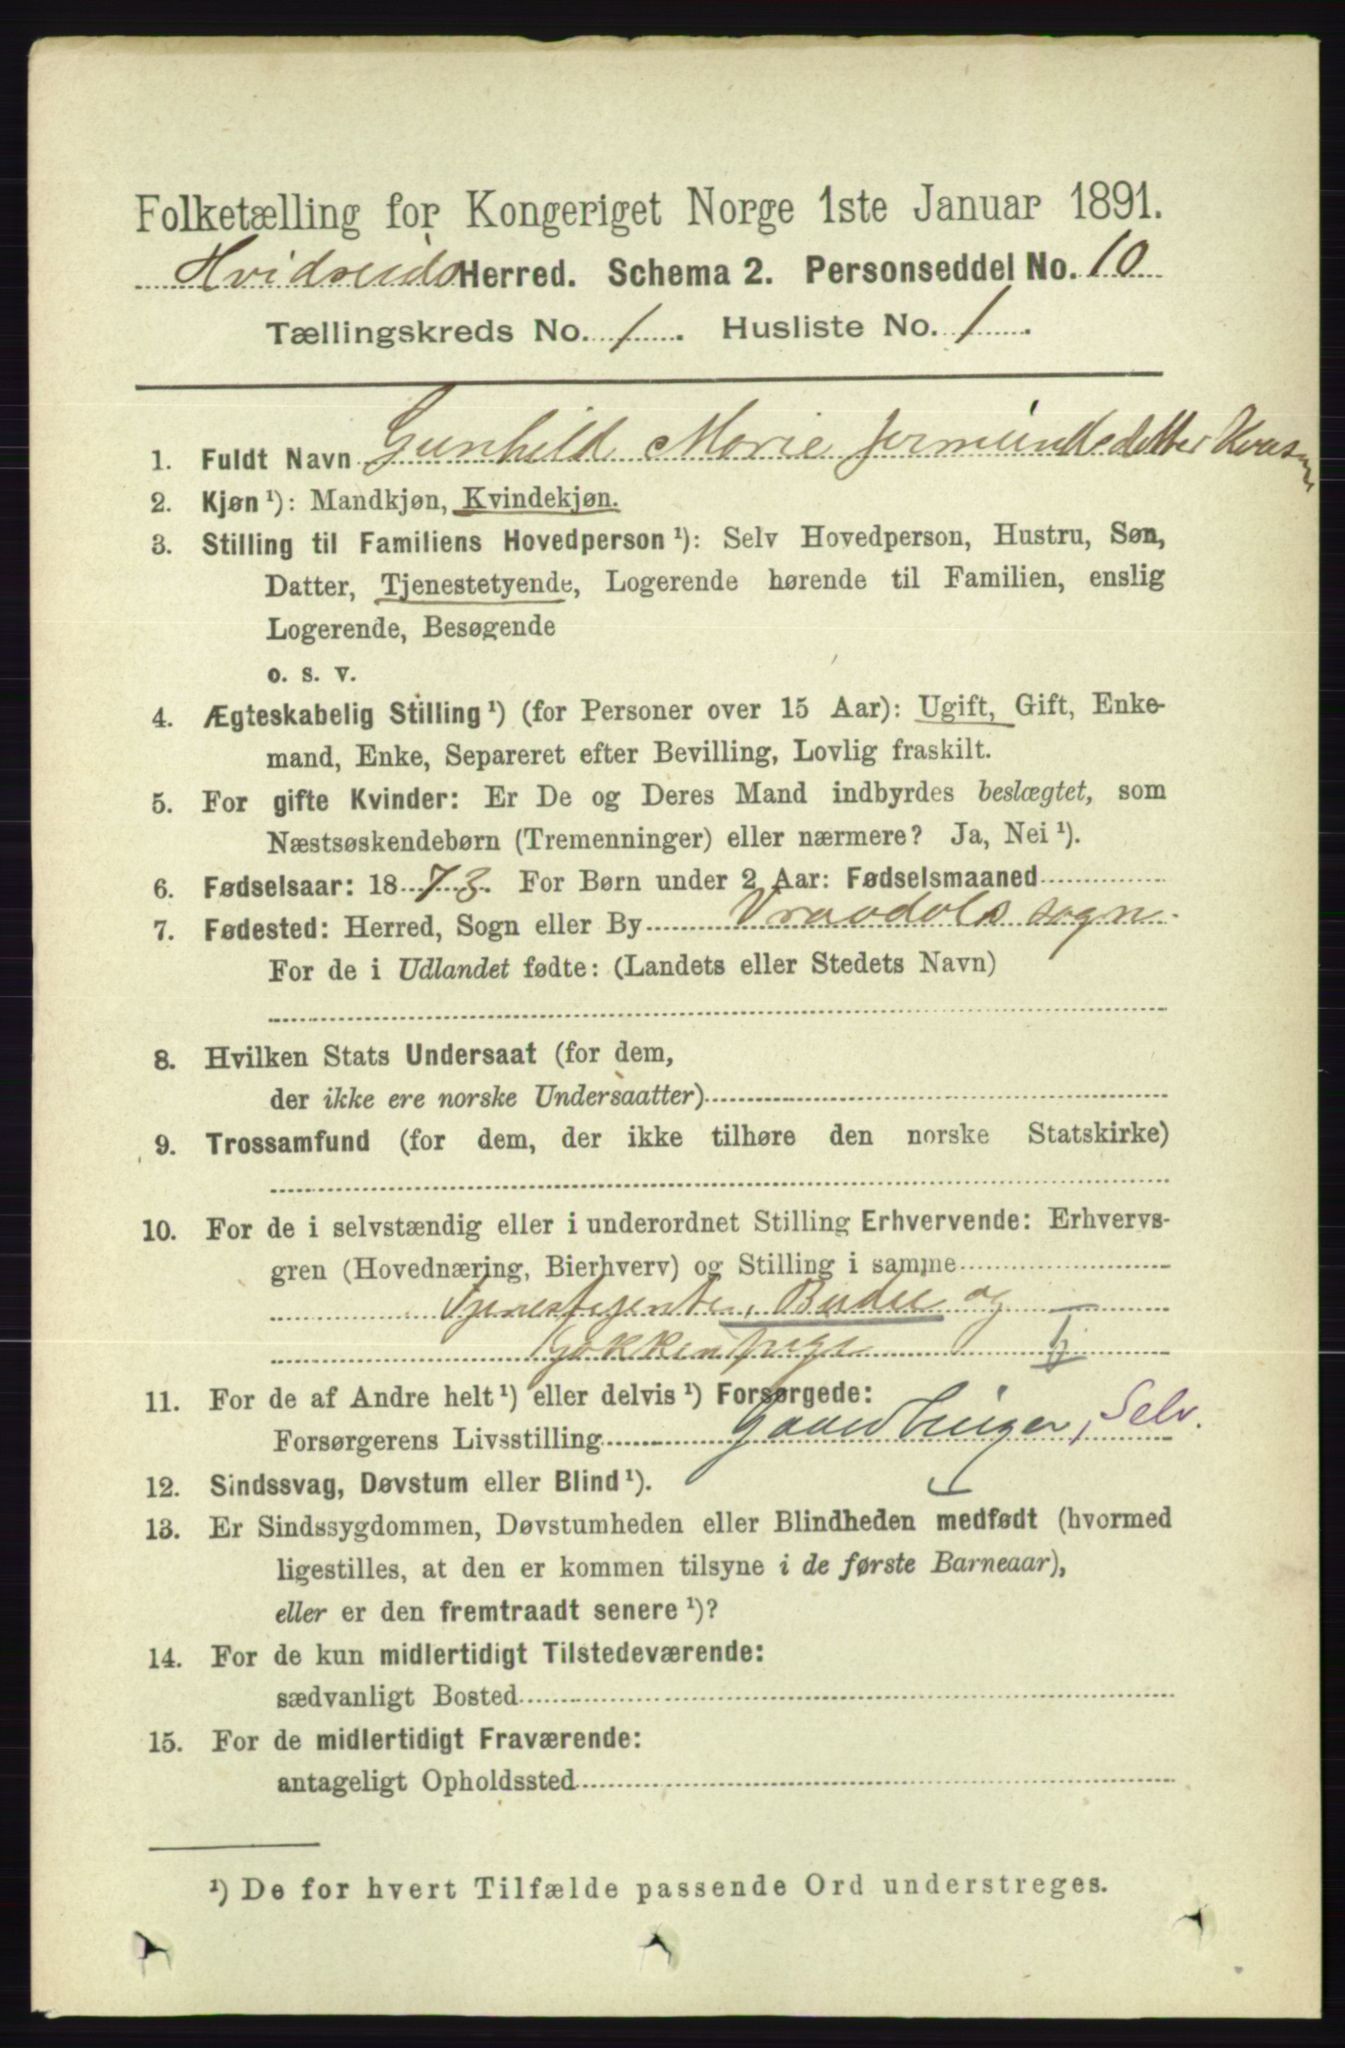 Folketælling for Kongeriget Norge 1ste Januar 1891.
Hvidseids Herred. Schema 2. Personseddel No. 10
Tællingskreds No. 1. Husliste No. 1.
1. Fuldt Navn Gunhild Marie Jermundsdatter
2. Kjøn ¹): Mandkjøn, Kvindekjøn.
3. Stilling til Familiens Hovedperson ¹): Selv Hovedperson, Hustru, Søn,
Datter, Tjenestetyende, Logerende hørende til Familien, enslig
Logerende, Besøgende
o. s. v.
4. Ægteskabelig Stilling ¹) (for Personer over 15 Aar): Ugift, Gift, Enke-
mand, Enke, Separeret efter Bevilling, Lovlig fraskilt.
5. For gifte Kvinder: Er De og Deres Mand indbyrdes beslægtet, som
Næstsøskendebørn (Tremenninger) eller nærmere? Ja, Nei ¹).
6. Fødselsaar: 1873. For Børn under 2 Aar: Fødselsmaaned
7. Fødested: Herred, Sogn eller By Vraadals sogn
For de i Udlandet fødte: (Landets eller Stedets Navn)
8. Hvilken Stats Undersaat (for dem,
der ikke ere norske Undersaatter)
9. Trossamfund (for dem, der ikke tilhøre den norske Statskirke)
10. For de i selvstændig eller i underordnet Stilling Erhvervende: Erhvervs-
gren (Hovednæring, Bierhverv) og Stilling i samme
Tjenestejente, Budei og
Kjøkkenpige
11. For de af Andre helt ¹) eller delvis ¹) Forsørgede:
Forsørgerens Livsstilling Gaardbruger, Selv.
12. Sindssvag, Døvstum eller Blind ¹).
13. Er Sindssygdommen, Døvstumheden eller Blindheden medfødt (hvormed
ligestilles, at den er kommen tilsyne i de første Barneaar),
eller er den fremtraadt senere ¹)?
14. For de kun midlertidigt Tilstedeværende:
sædvanligt Bosted
15. For de midlertidigt Fraværende:
antageligt Opholdssted
¹) De for hvert Tilfælde passende Ord understreges.